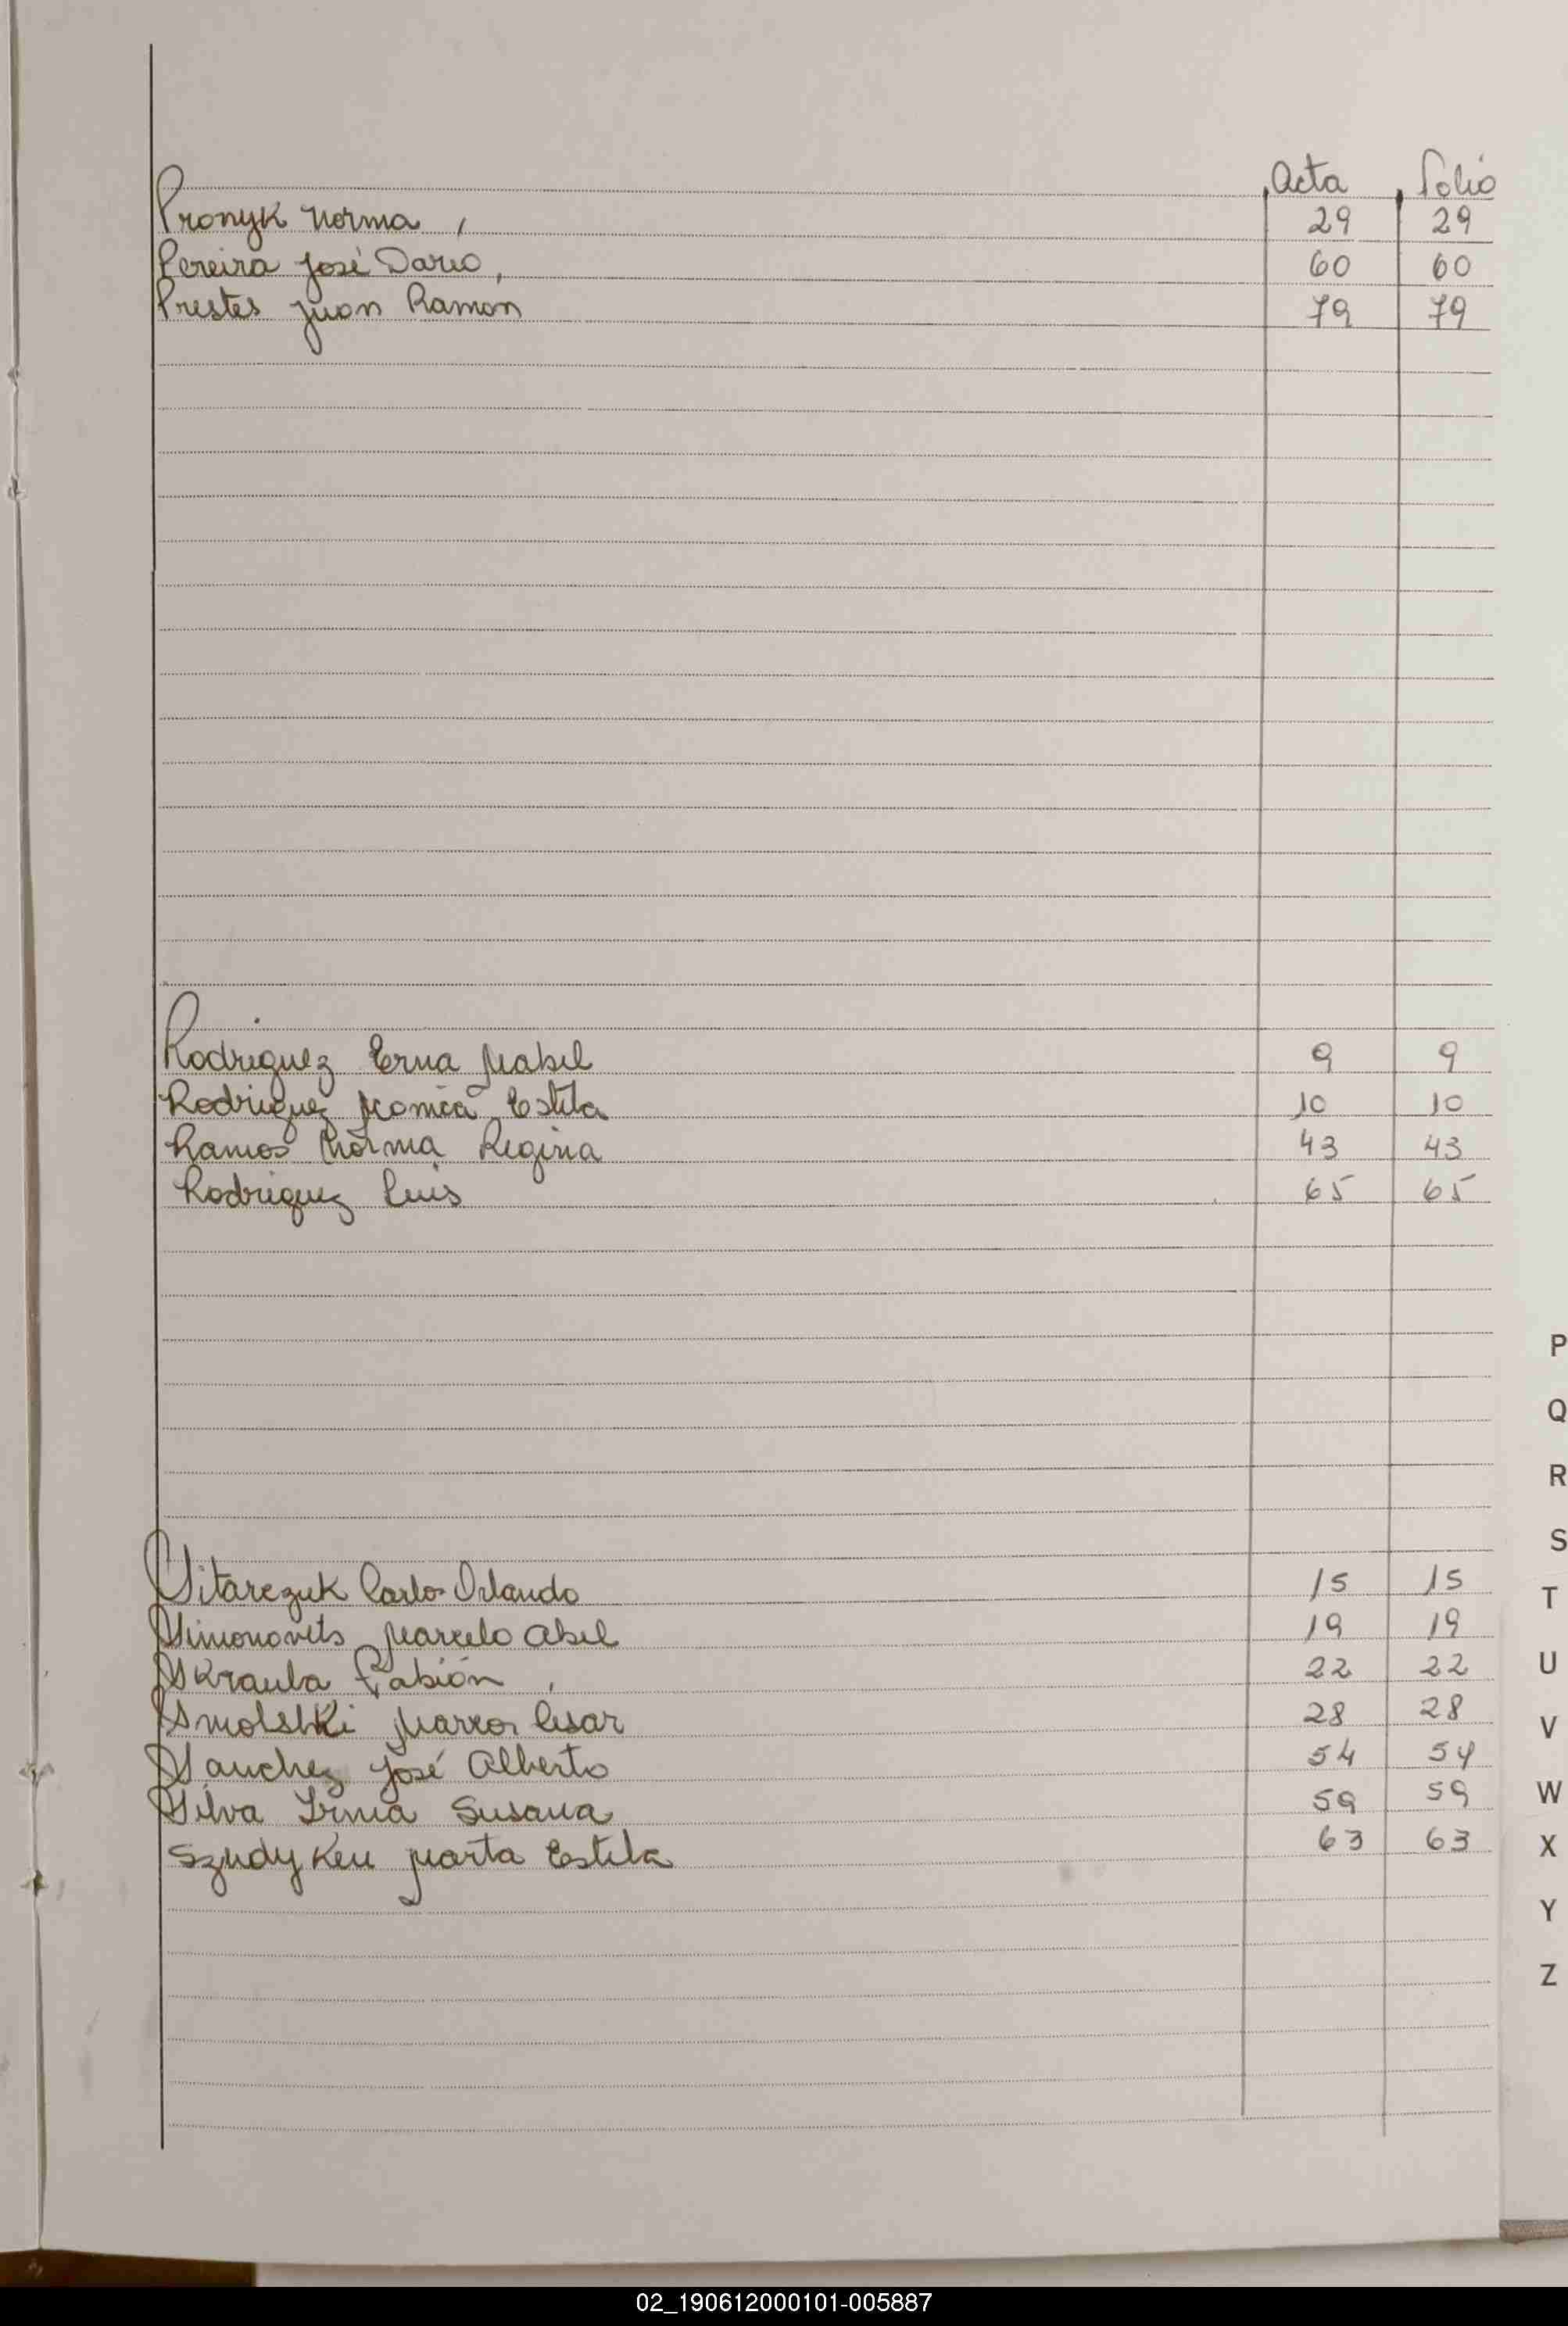 Acta Folio
Pronyk Norma, 29 29
Pereira José Dario, 60 60
Prestes Juan Ramon 79 79
Rodriguez Erna Mabel 9 9
Rodriguez Monica Estela 10 10
Ramos Norma Regina 43 43
Rodriguez Luis 65 65
Sitarczuk Carlos Orlando 15 15
Simonovits Marcelo Abel 19 19
Skraula Fabián, 22 22
Marcos Cesar 28 28
Sanchez José Alberto 54 54
Silva Irma Susana 59 59
Marta Estela 63 63
P
Q
R
S
T
U
V
W
X
Y
Z
02_190612000101-005887